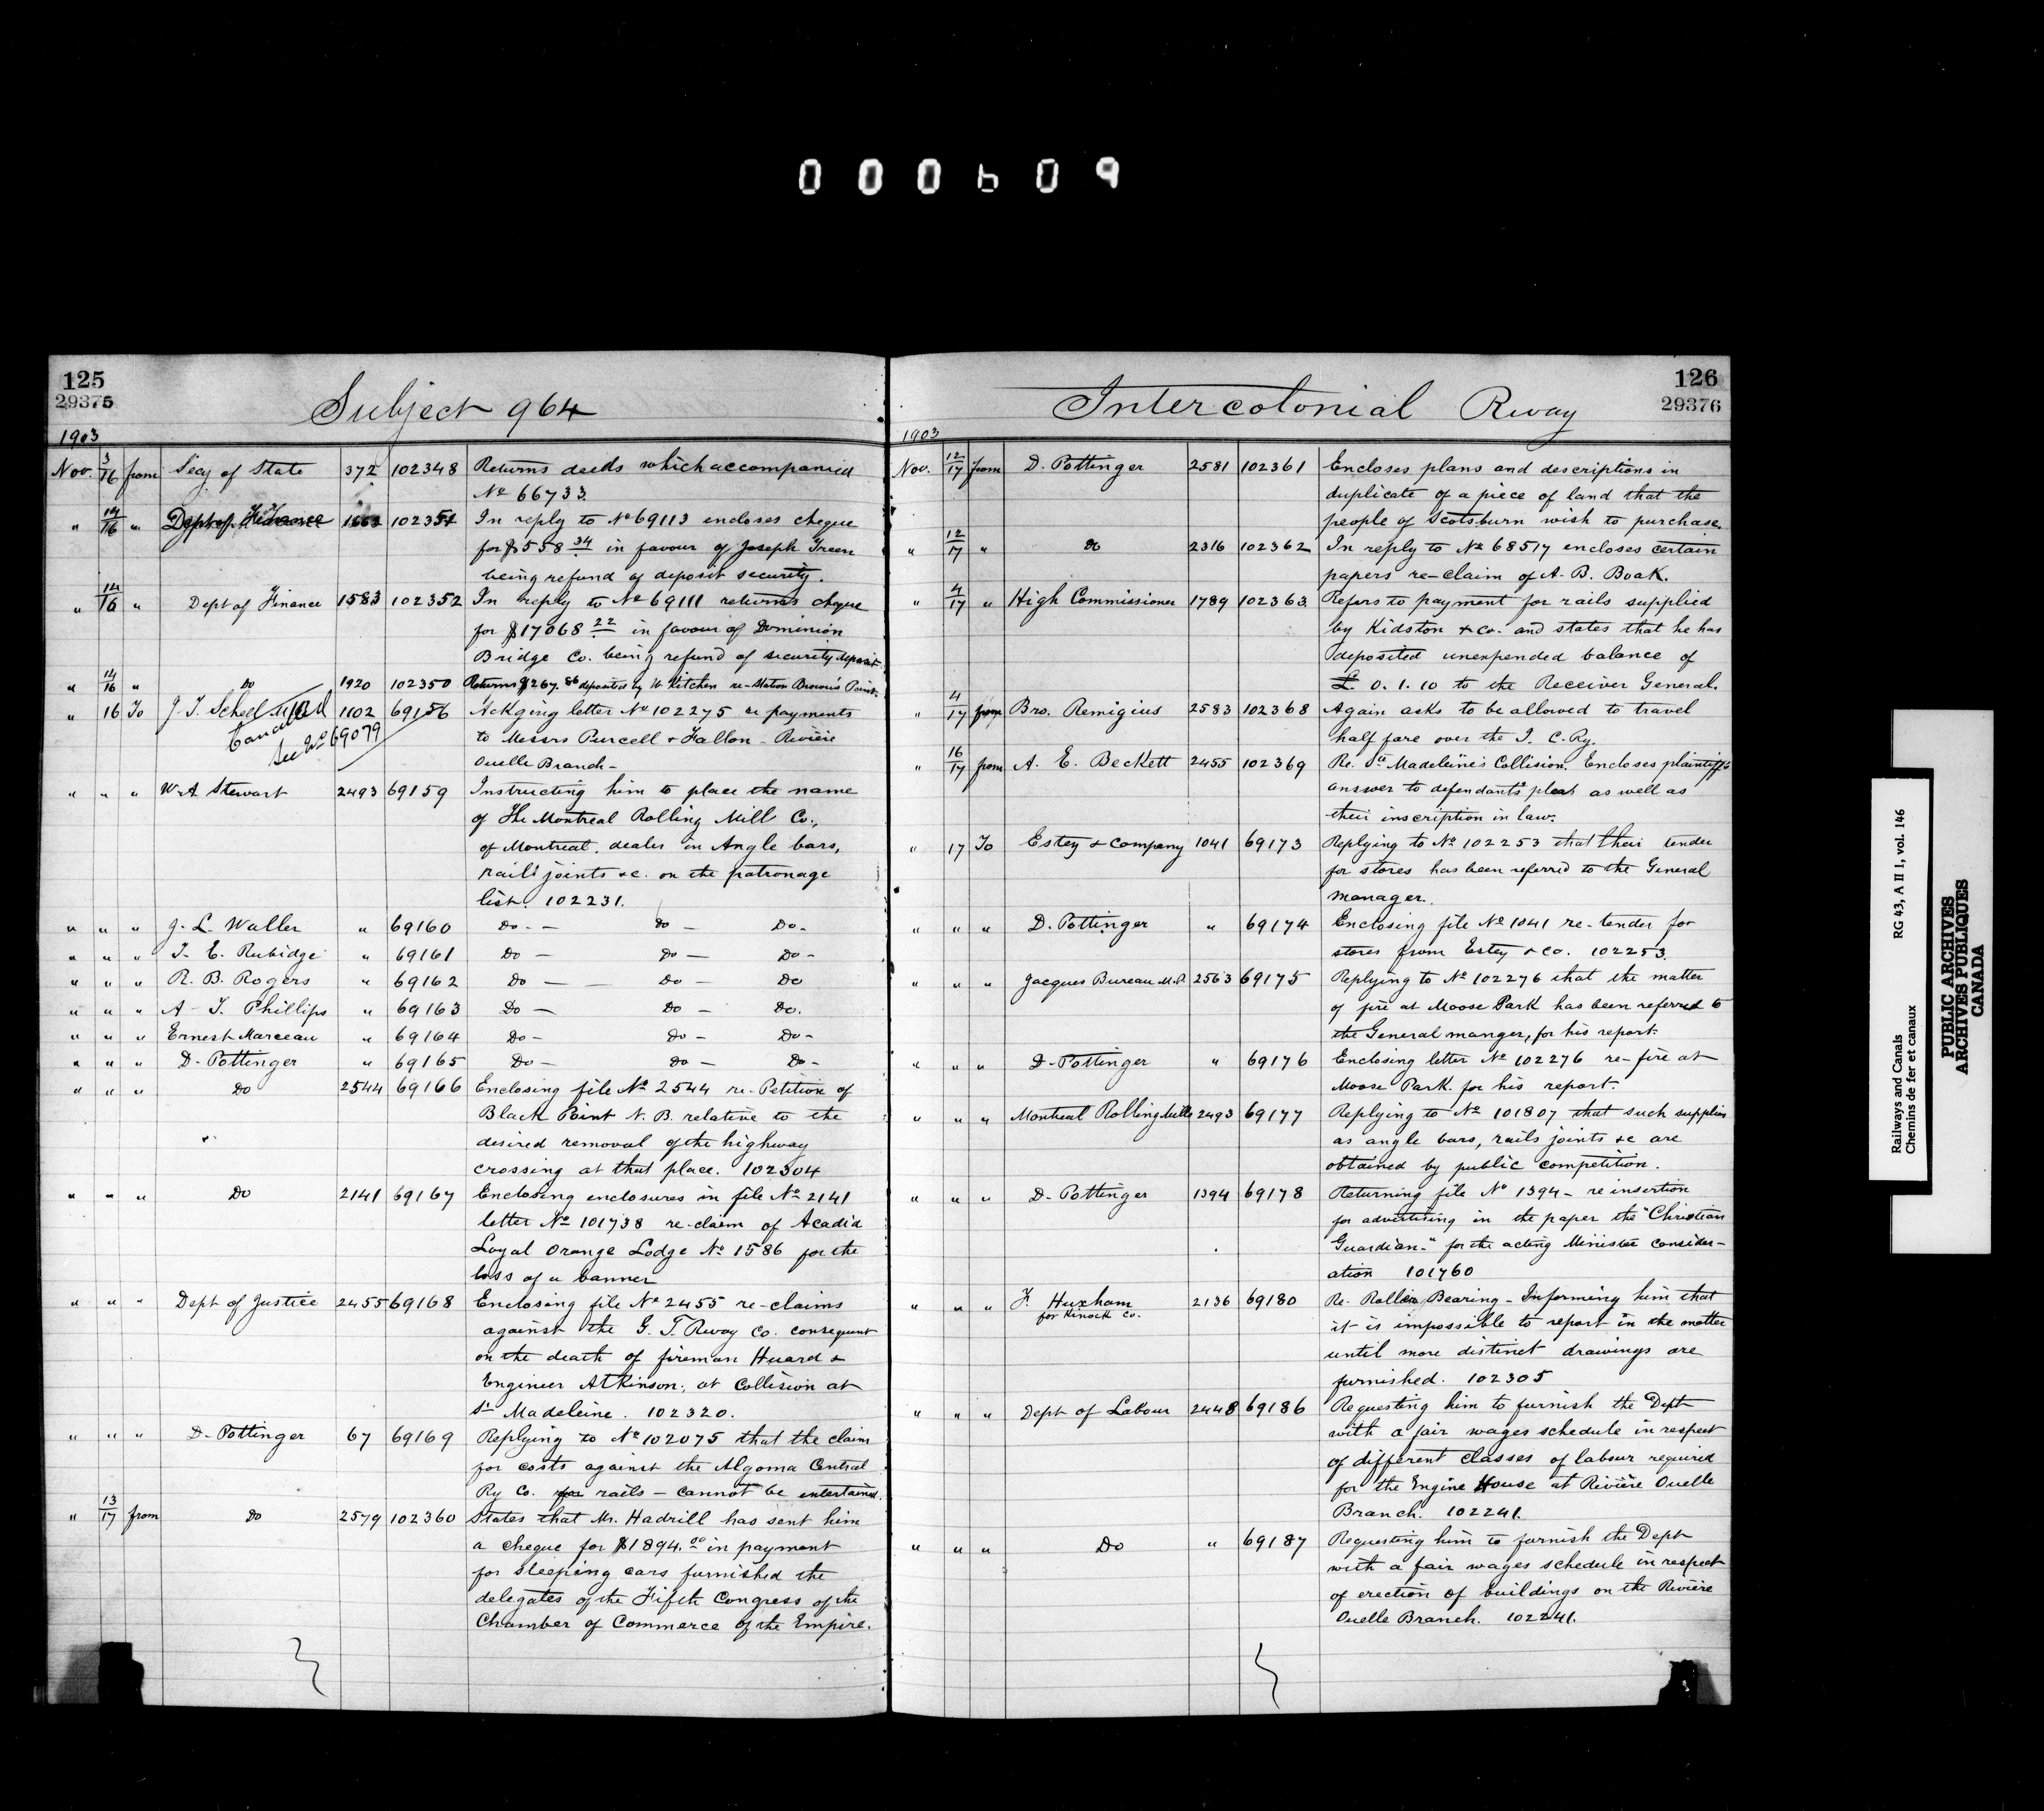 000609
125
29375
Subject 964
1903
Nov. 3/16 from Secy of State 372 102348 Returns deeds which accompanied
No 66733.
" 14/16 " Dept of Finance 102351 In reply to No 69113 encloses cheque
for $558 34 in favour of Joseph Green
being refund of deposit security.
" 14/16 " Dept of Finance 1583 102352 In reply to No 69111 returns cheque
for $17068 22 in favour of Dominion
Bridge Co. being refund of security deposit
" 14/16 " Do 1920 102350 Returns $267.86 deposited by W. Kitchen re-Station Brown's Point.
" 16 To 1102 69156 Ackging letter No 102275 re payments
Cancelled
See No 69079
to Messrs Purcell & Fallon - Rivière
Ouelle Branch -
" " " W A Stewart 2493 69159 Instructing him to place the name
of The Montreal Rolling Mill Co.,
of Montreal, dealer in Angle bars,
rail joints &c. on the patronage
list. 102231.
" " " J. L. Waller " 69160 Do - - Do - Do -
" " " T. E. Rubidge " 69161 Do - Do - Do -
" " " R. B. Rogers " 69162 Do - - Do - Do
" " " A - T. Phillips " 69163 Do - Do - Do.
" " " Ernest Marceau " 69164 Do - Do - Do -
" " " D - Pottinger " 69165 Do - Do - Do -
" " " Do 2544 69166 Enclosing file No 2544 re- Petition of
Black Point N. B. relative to the
desired removal of the highway
crossing at that place. 102304
" " " Do 2141 69167 Enclosing enclosures in file No 2141
letter No 101738 re-claim of Acadia
Loyal Orange Lodge No 1586 for the
loss of a banner
" " " Dept of Justice 2455 69168 Enclosing file No 2455 re-claims
against the G. T. Rway Co. consequent
on the death of fireman Huard &
Engineer Atkinson, at Collision at
St Madeleine. 102320.
" " " D - Pottinger 67 69169 Replying to No 102075 that the claim
for costs against the Algoma Central
Ry Co. for rails - cannot be entertained.
" 13/17 from Do 2579 102360 States that Mr. Hadrill has sent him
a cheque for $1894.00 in payment
for sleeping cars furnished the
delegates of the Fifth Congress of the
Chamber of Commerce of the Empire.
126
29376
Intercolonial Rway
1903
Nov. 12/17 from D. Pottinger 2581 102361 Encloses plans and descriptions in
duplicate of a piece of land that the
people of Scotsburn wish to purchase.
" 12/17 " Do 2316 102362 In reply to No 68517 encloses certain
papers re-claim of A. B. Boak.
" 4/17 " High Commissioner 1789 102363 Refers to payment for rails supplied
by Kidston & Co. and states that he has
deposited unexpended balance of
£. 0.1.10 to the Receiver General.
" 4/17 from Bro. Remigius 2583 102368 Again asks to be allowed to travel
half fare over the I. C. Ry.
" 16/17 from A. E. Beckett 2455 102369 Re. Ste Madeleine's Collision. Encloses plaintiff's
answer to defendants pleas as well as
their inscription in law.
" 17 To Estey & Company 1041 69173 Replying to No 102253 that their tender
for stores has been referred to the General
manager.
" " " D. Pottinger " 69174 Enclosing file No 1041 re-tender for
stores from Estey & Co. 102253.
" " " Jacques Bureau M.P. 2563 69175 Replying to No 102276 that the matter
of fire at Moose Park has been referred to
the General manger, for his report.
" " " D - Pottinger " 69176 Enclosing letter No 102276 re-fire at
Moose Park. for his report.
" " " Montreal Rolling Mills 2493 69177 Replying to No 101807 that such supplies
as angle bars, rails joints &c are
obtained by public competition.
" " " D - Pottinger 1394 69178 Returning file No 1394 - re insertion
for advertising in the paper the "Christian
Guardian." for the acting Minister consider-
ation 101760
" " " F. Huxham 2136 69180 Re. Roller Bearing - Informing him that
for Kinock Co.
it is impossible to report in the matter
until more distinct drawings are
furnished. 102305
" " " Dept of Labour 2448 69186 Requesting him to furnish the Dept
with a fair wages schedule in respect
of different classes of labour required
for the Engine House at Rivière Ouelle
Branch. 102241.
" " " Do " 69187 Requesting him to furnish the Dept
with a fair wages schedule in respect
of erection of buildings on the Rivière
Ouelle Branch. 102241.
Railways and Canals RG 43, A II 1, vol. 146
Chemins de fer et canaux
PUBLIC ARCHIVES
ARCHIVES PUBLIQUES
CANADA